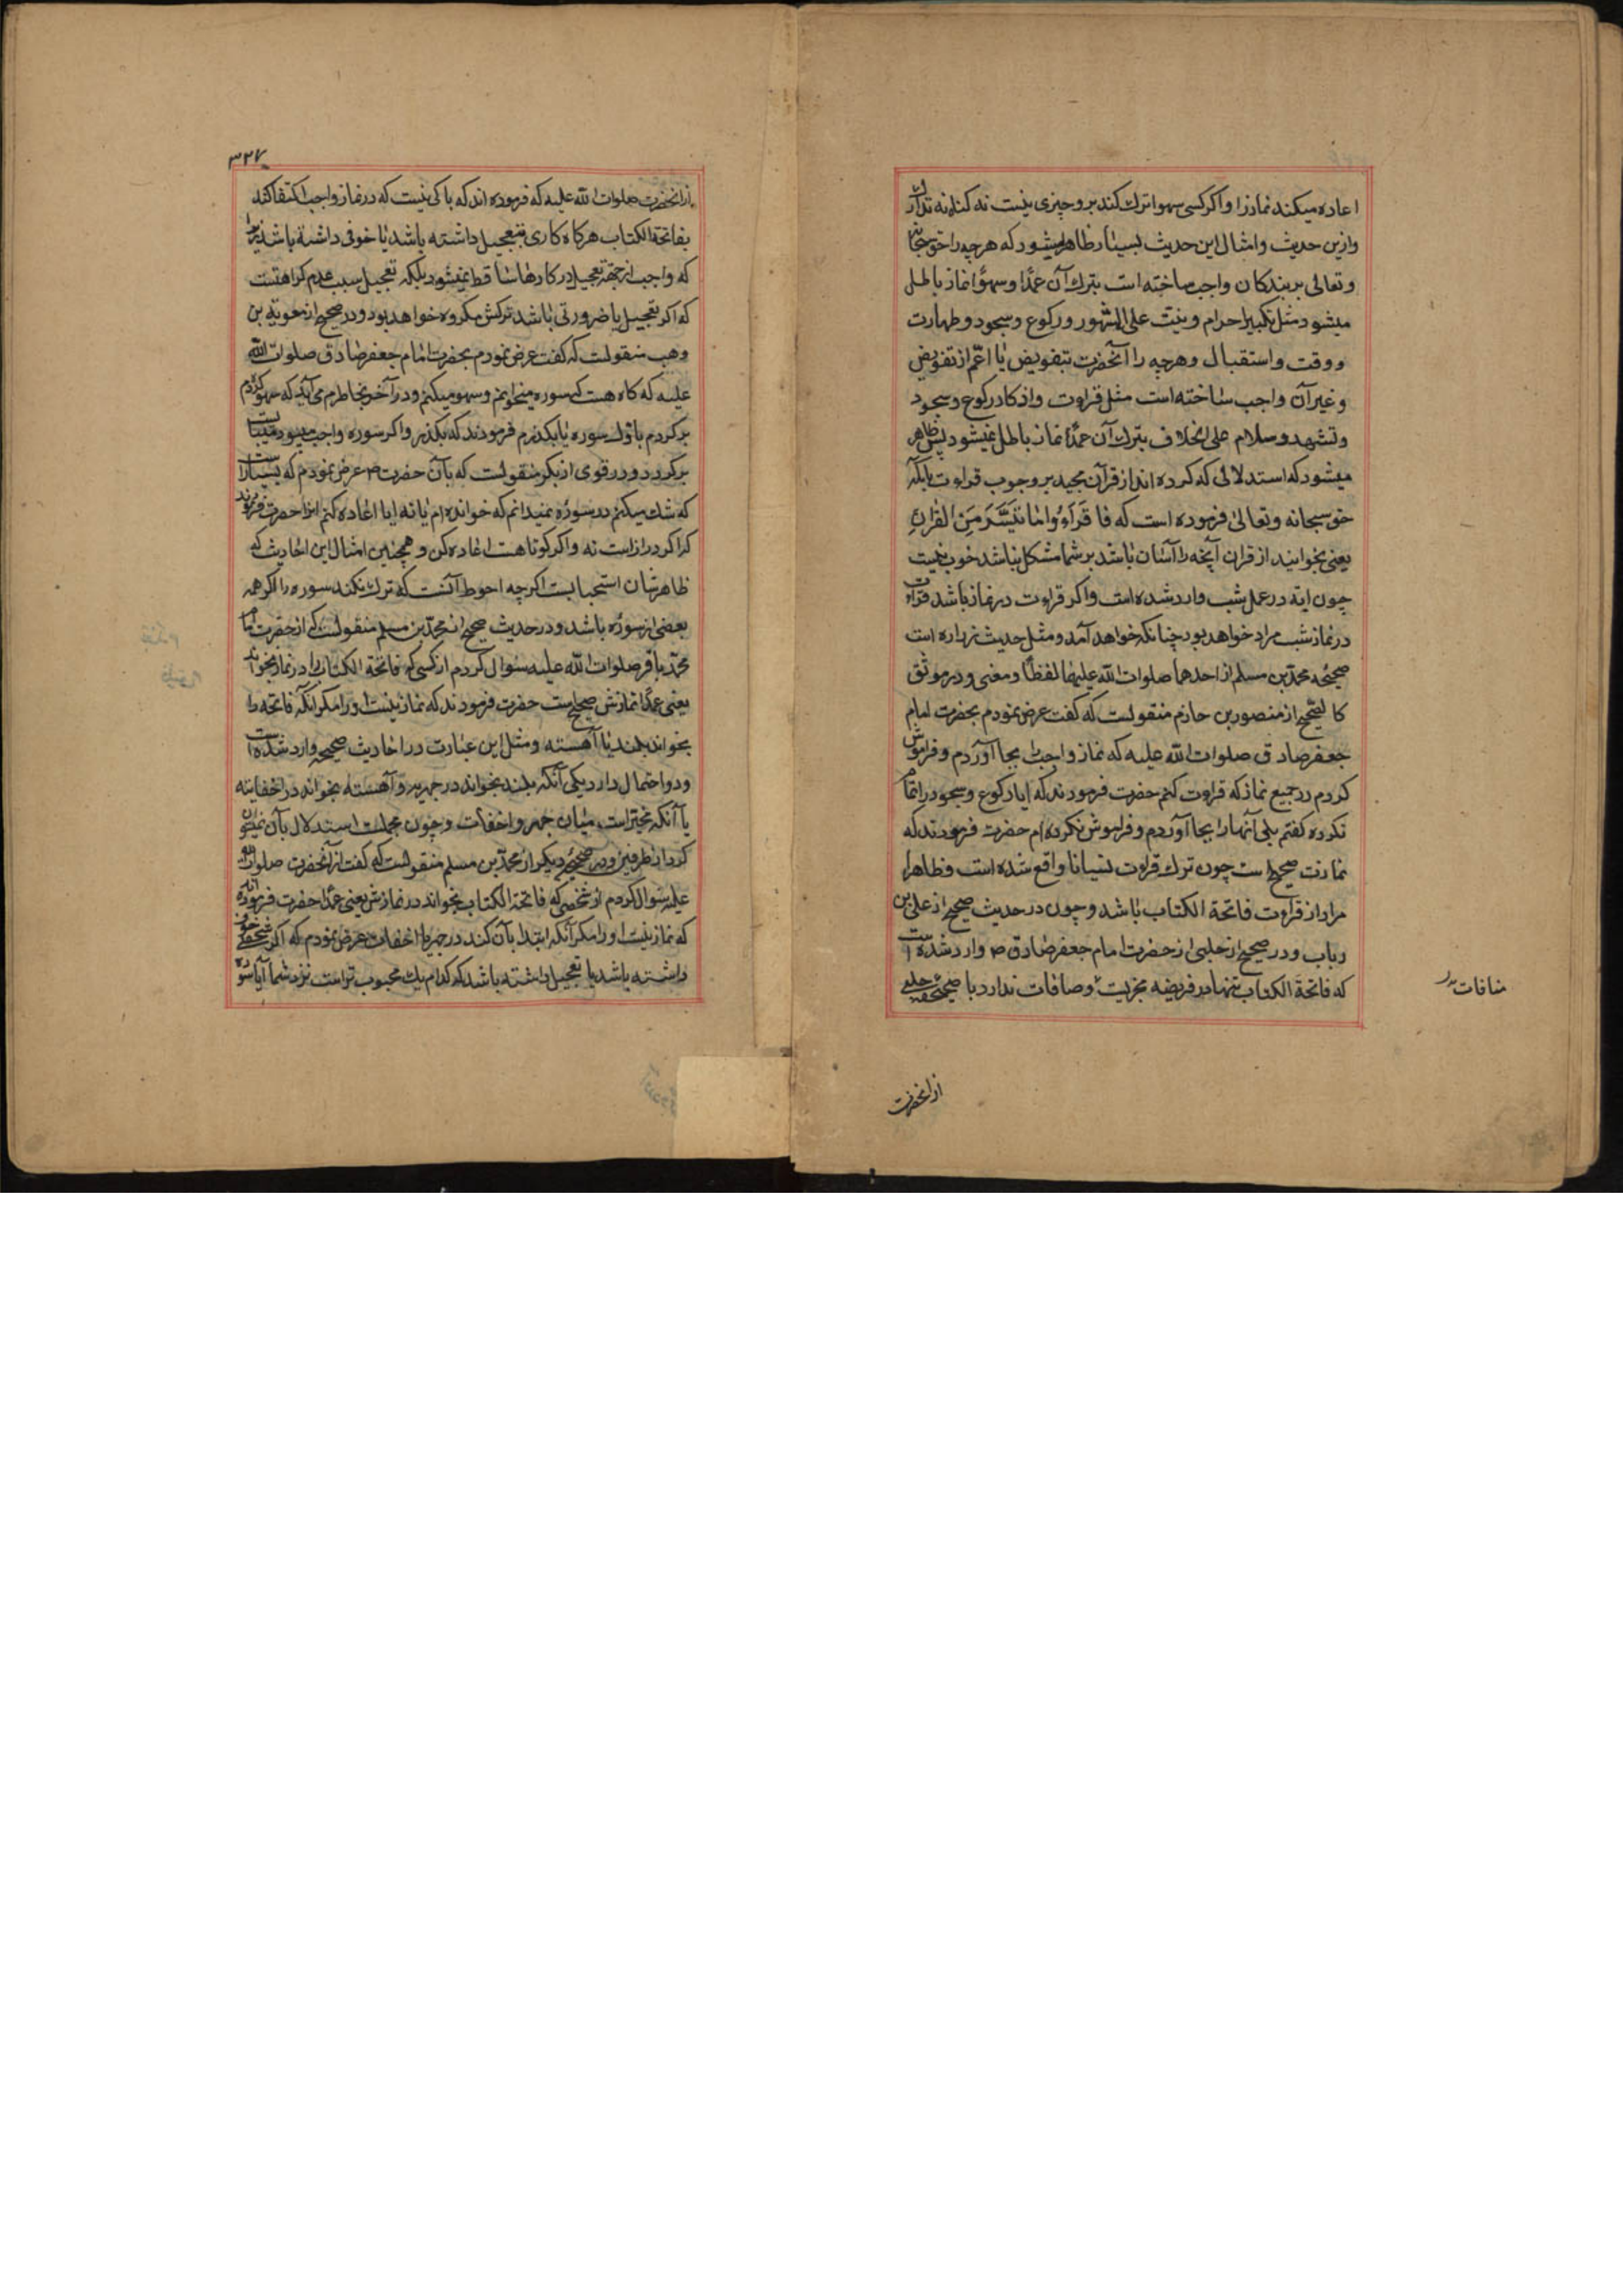 اعاده میکند نماز را و اکر کسی سهوا ترك کند برو چیزی نیست نه کناه نه تدارك
و ازین حدیث و امثال این حدیث بسیار ظاهر میشود که هرچه را حق سبحانه
و تعالی بر بندکان واجب ساخته است بترك آن عمدًا و سهوًا نماز باطل
میشود مثل تکبیر احرام و نیت علی المشهور و رکوع و سجود و طهارت
و وقت و استقبال و هرچه را آنحضرت بتفویض یا اعّم از تفویض
و غیر آن واجب ساخته است مثل قراءت و اذکار رکوع و سجود
و تشهد و سلام علی الخلاف بترك آن عمدًا نماز باطل نمیشود پس ظاهر
میشود که استدلالی که کرده اند از قرآن مجید بر وجوب قراءت بآنکه
حق سبحانه و تعالی فرموده است که فَاقْرَءُوا مَا تَیَسَّرَ مِنَ الْقُرْآنِ
یعنی بخوانید از قران آنچه را آسان باشد بر شما مشکل نباشد خوب نیست
چون ایه در عمل شب وارد شده است و اکر قراءت در نماز باشد قراءت
در نماز شب مراد خواهد بود چنانکه خواهد آمد و مثل حدیث زراره است
صحیحه محمد بن مسلم از احدهما صلوات الله علیهما لفظًا و معنی و در موثق
کالصحیح از منصور بن حازم منقولست که کفت عرض نمودم بحضرت امام
جعفر صادق صلوات الله علیه که نماز واجب را بجا آوردم و فراموش
کردم در جمیع نماز که قراءت کنم حضرت فرمودند که ایا رکوع و سجود را تمام
نکرده کفتم بلی آنها را بجا آوردم و فراموش نکرده ام حضرت فرمودند که
نمازت صحیح است چون ترك قراءت نسیانا واقع شده است و ظاهرا
مراد از قراءت فاتحة الکتاب باشد و چون در حدیث صحیح از علی بن
رباب و در صحیح از حلبی از حضرت امام جعفر صادق ص وارد شده است
که فاتحة الکتاب تنها در فریضه مجزیست و منافات ندارد با صحیحه حلبی
منافات
از انحضرت
۳۲۷
از انحضرت صلوات الله علیه که فرموده اند که باکی نیست که در نماز واجب اکتفا کند
بفاتحة الکتاب هرکاه کاری بتعجیل داشته باشد یا خوفی داشته باشد زیرا
که واجب از جهة تعجیل در کارها ساقط نمیشود بلکه تعجیل سبب عدم کراهتست
که اکر تعجیل یا ضرورتی باشد ترکش مکروه خواهد بود و در صحیح از معویة بن
وهب منقولست که کفت عرض نمودم بحضرت امام جعفر صادق صلوات الله
علیه که کاه هست که سوره میخوانم و سهو میکنم و در آخر بخاطرم می آید که سهو کردم
بر کردم باول سوره یا بکذرم فرمودند که بکذر و اکر سوره واجب میبود میبایست
بر کردد و در قوی از بکر منقولست که بآن حضرت ص عرض نمودم که بسیار است
که شك میکنم در سوره نمیدانم که خوانده ام یا نه ایا اعاده کنم انرا حضرت فرمودند
که اکر دراز است نه و اکر کوتاهست اعاده کن و همچنین امثال این احادیث که
ظاهرشان استحبابست اکرچه احوط آنست که ترك نکند سوره را اکر همه
بعضی از سوره باشد و در حدیث صحیح از محمد بن مسلم منقولست که از حضرت امام
محمّد باقر صلوات الله علیه سئوال کردم از کسی که فاتحة الکتاب را در نماز نخواند
یعنی عمدًا نمازش صحیح است حضرت فرمودند که نماز نیست او را مکر انکه فاتحه را
بخواند بلند یا آهسته و مثل این عبارت در احادیث صحیحه وارد شده است
و دو احتمال دارد یکی آنکه بلند بخواند در جهریه و آهسته بخواند در اخفاتیه
یا آنکه مخیّر است میان جهر و اخفات و چون مجملست استدلال بآن نمیتوان
کرد از طرفین و در صحیح دیکر از محمّد بن مسلم منقولست که کفت از آنحضرت صلوات الله
علیه سئوال کردم از شخصی که فاتحة الکتاب نخواند در نمازش یعنی عمدًا حضرت فرموده اند
که نماز نیست او را مکر آنکه ابتدا بآن کند در جهر یا اخفات عرض نمودم که اکر شخصی خوف
داشته باشد یا تعجیل داشته باشد که کدام یك محبوب تر است نزد شما آیا سوره